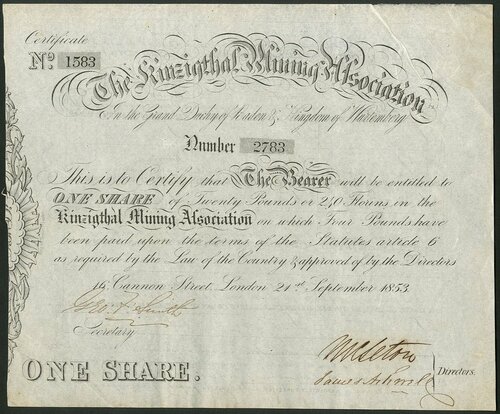 Certificate
No. 1583
The Kinzigthal Mining Association
In the Grand Duchy of Baden & Kingdom of Wurtemberg
Number 2783
This is to Certify that The Bearer will be entitled to
ONE SHARE of Twenty Pounds or 240 Florins in the
Kinzigthal Mining Association on which Four Pounds have
been paid upon the terms of the Statutes article 6
as required by the Law of the Country & approved of by the Directors
Cannon Street, London 21st September 1853
Geo. F. Smith
Secretary
ONE SHARE.
Directors.